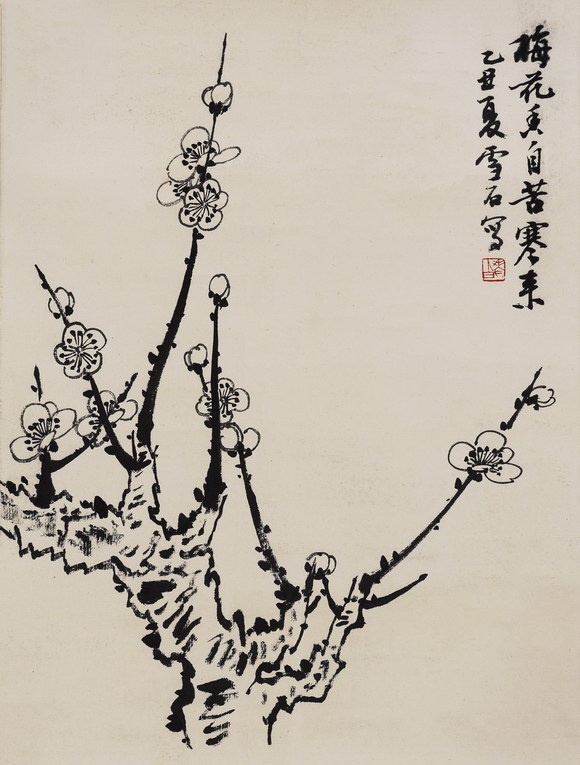 梅花香自苦寒来
乙丑夏雪石写